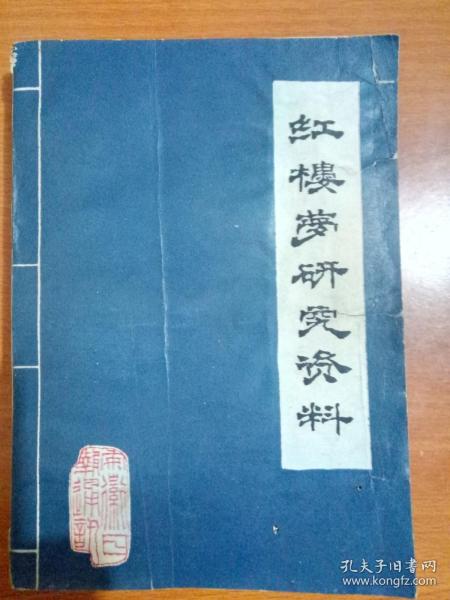 红楼梦研究资料
孔夫子旧书网
www.kongfz.com